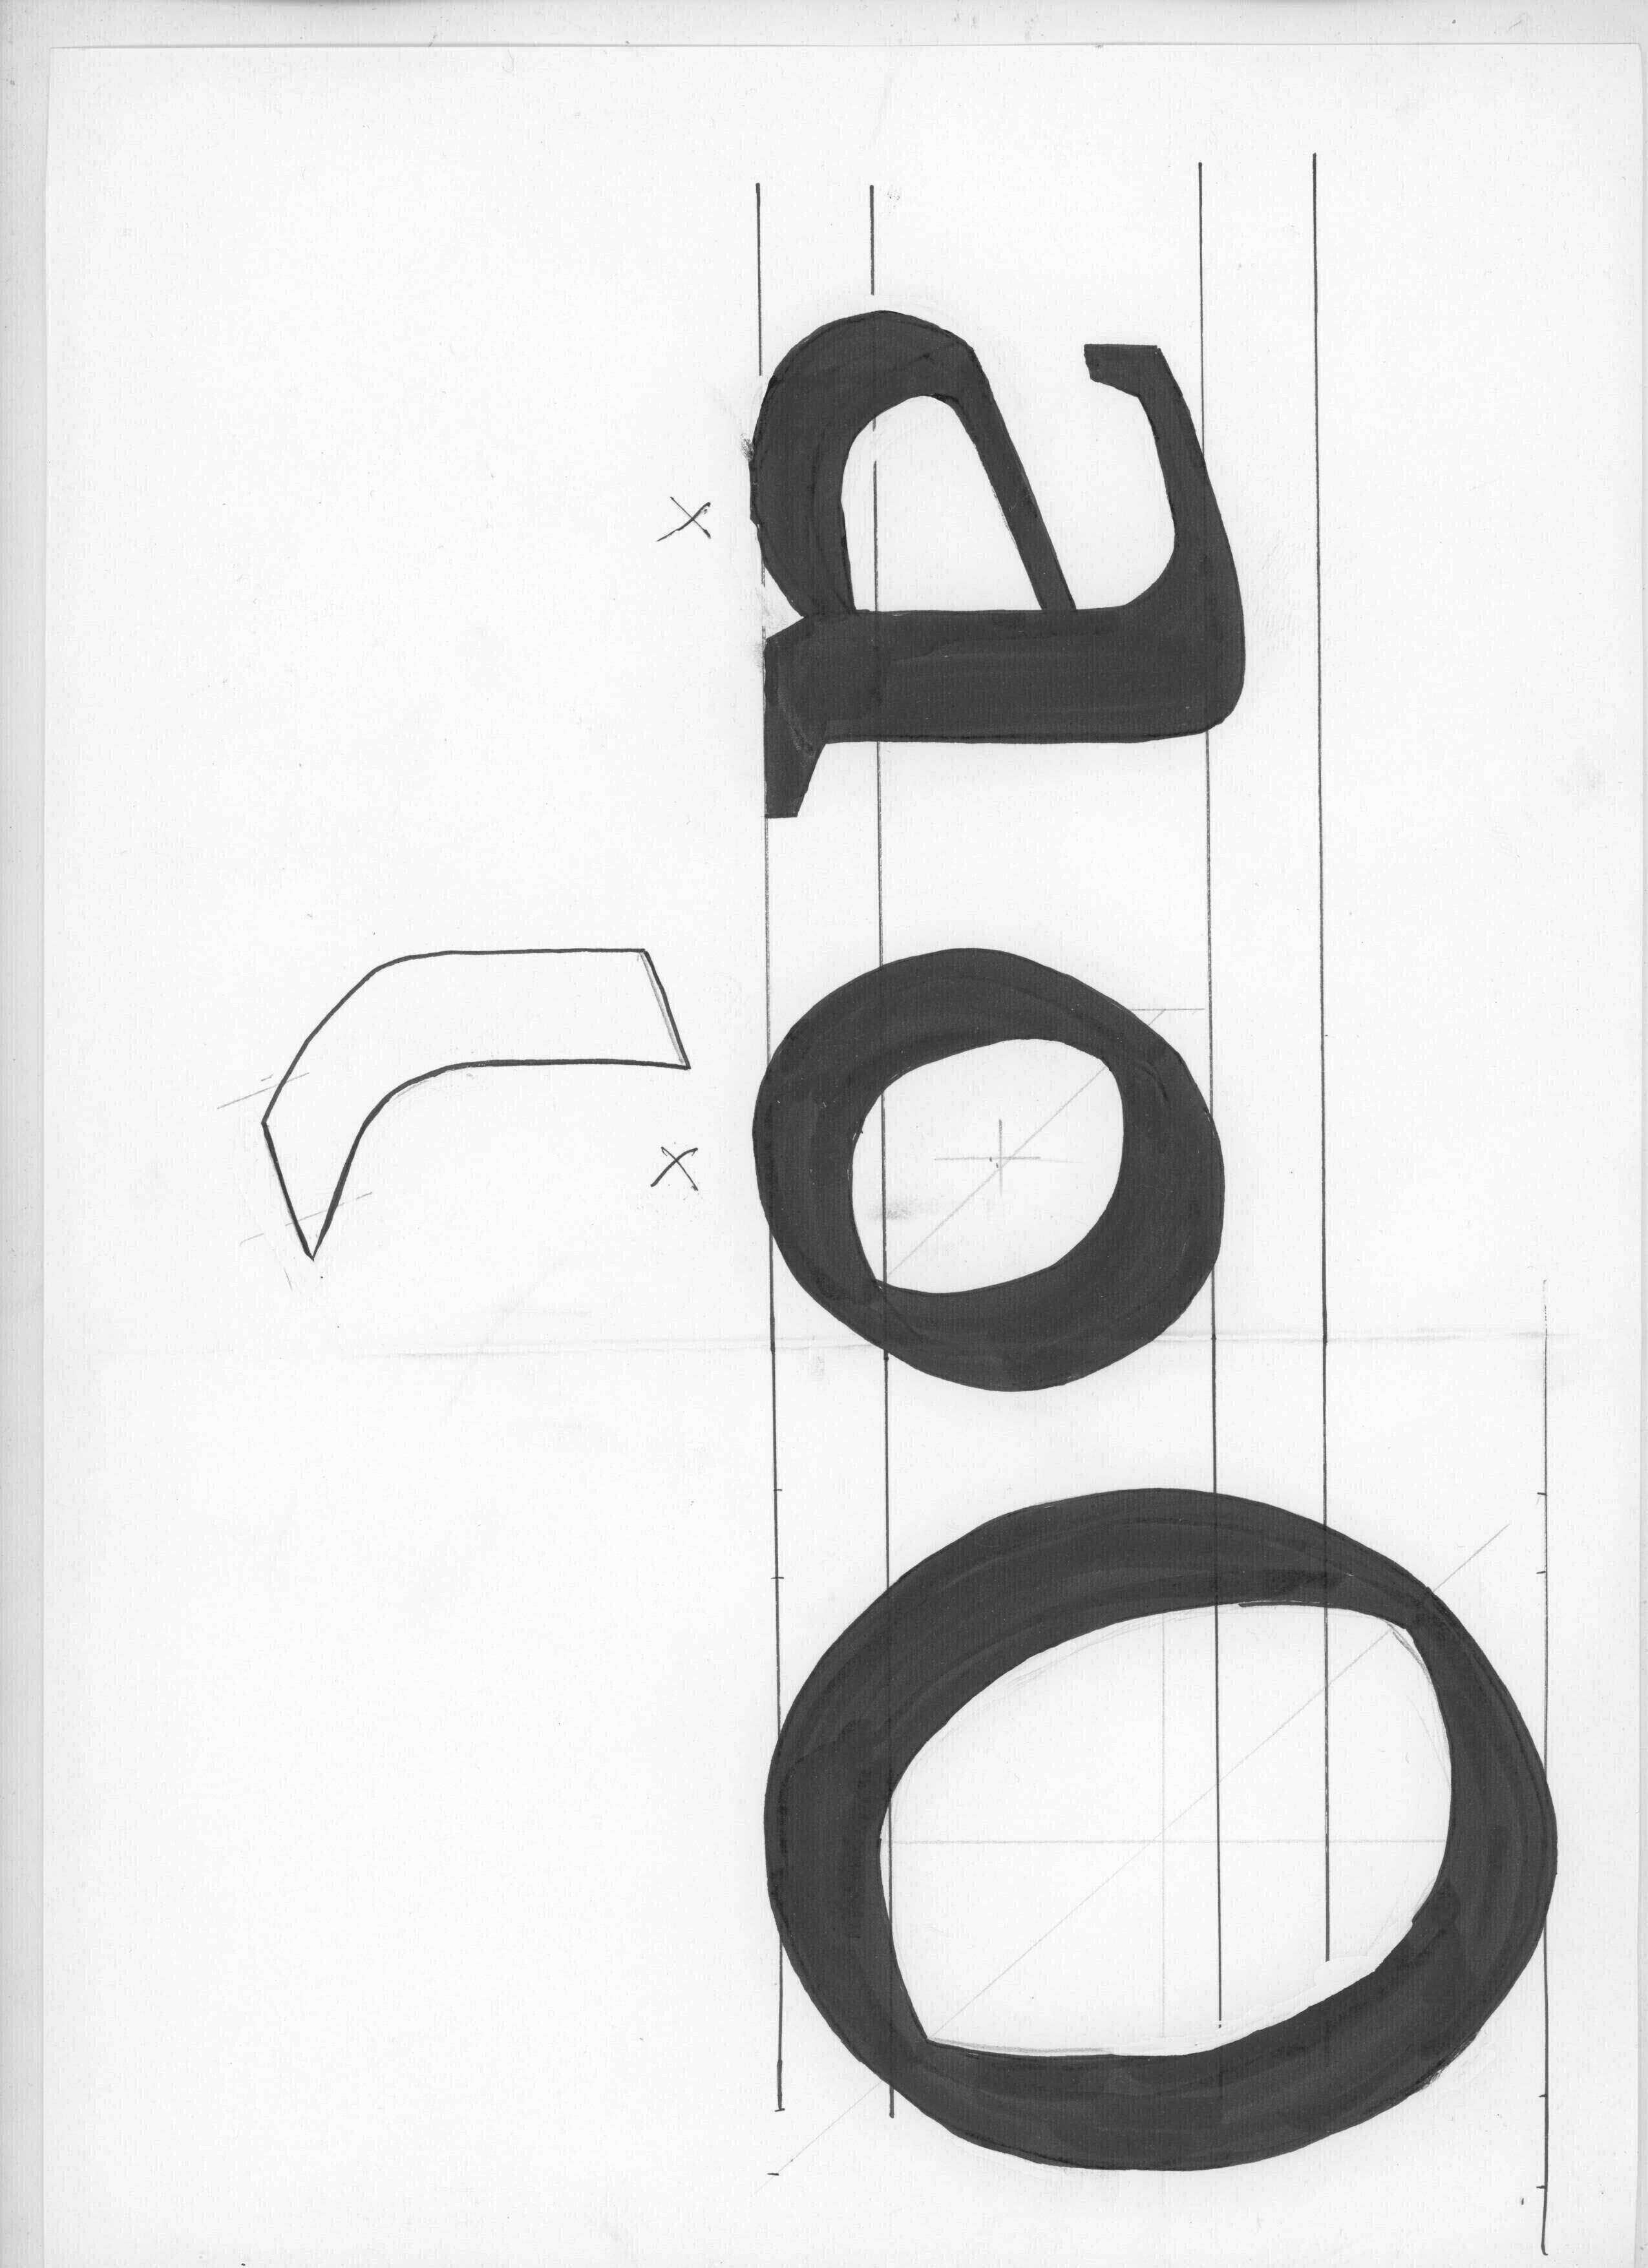 aoO
x x